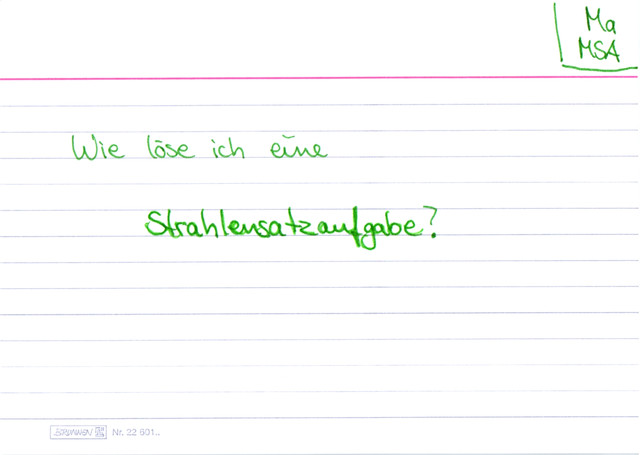 Ma
MSA
Wie löse ich eine
Strahlensatzaufgabe?
BRUNNEN Nr. 22 601..